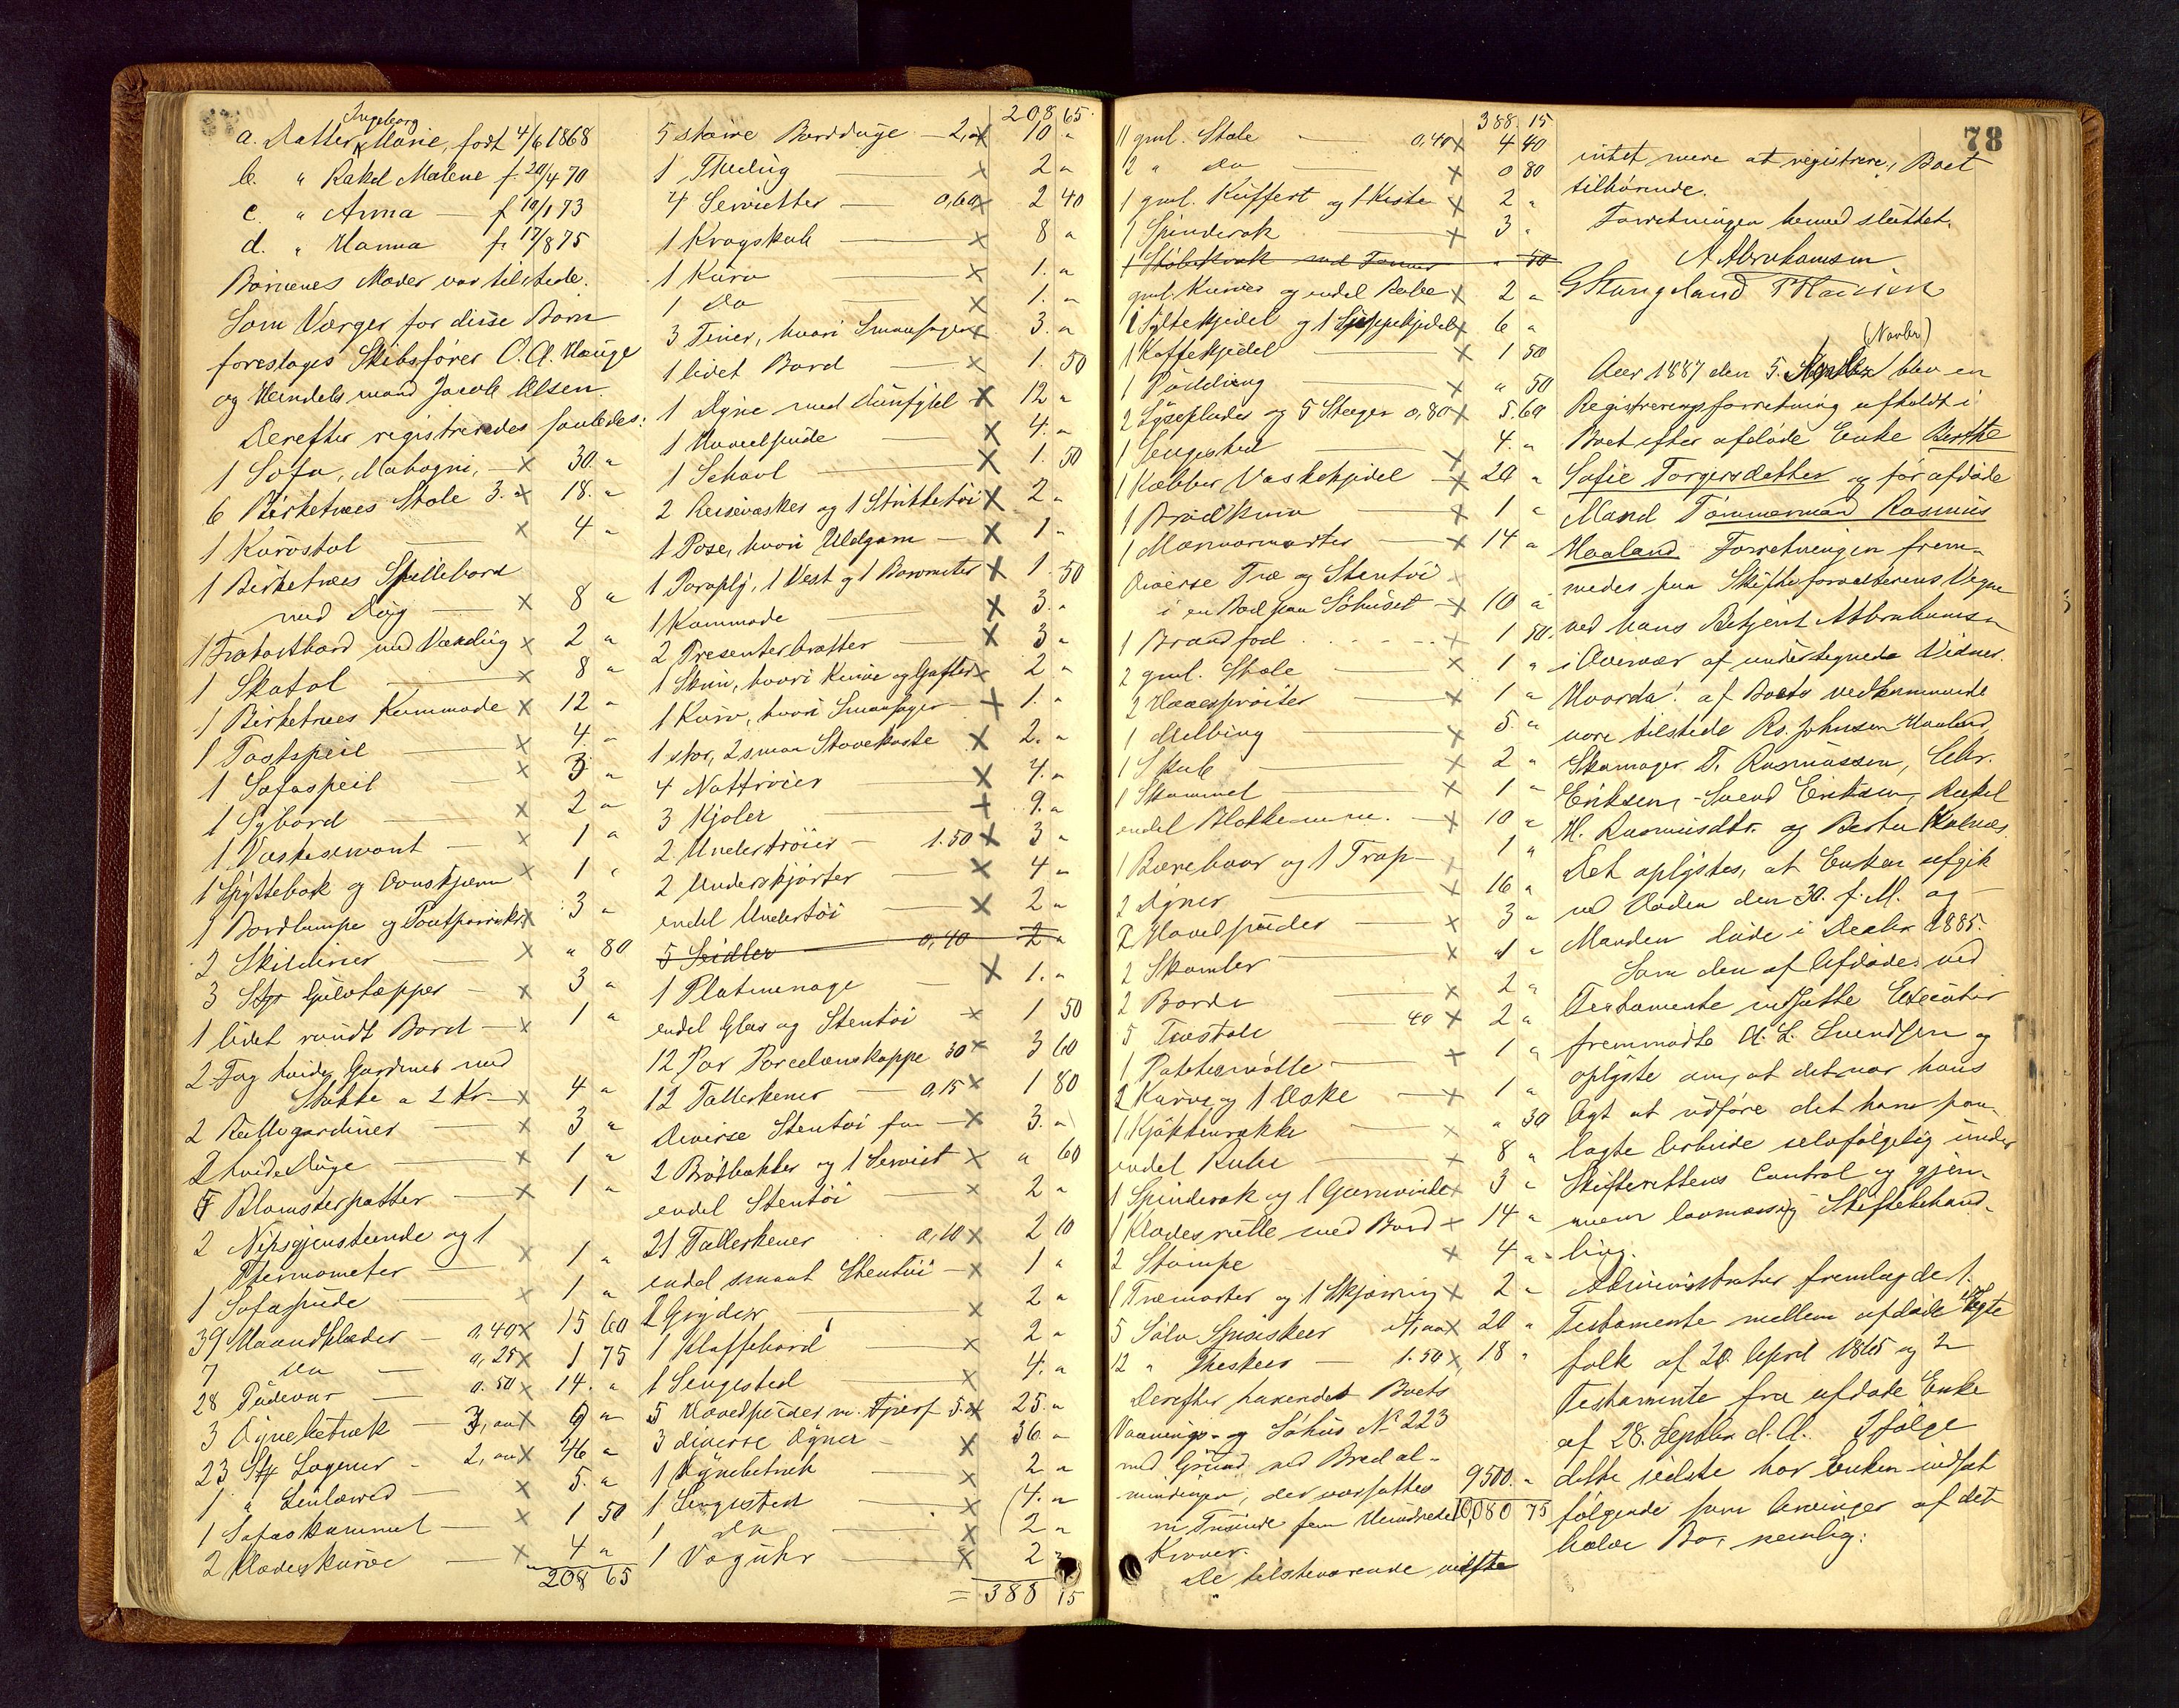 Ingeborg
a. Datter Marie, født 4/6 1868
b. " Rakel Malene f. 20/4 70
c. " Anna — f 10/1 73
d. " Hanna f. 17/8 75
Børnenes Moder var tilstede.
Som Værger for disse Børn
foresloges Skibsfører O. A. Hauge
og Handelsmand Jacob Olsen.
Derefter registreredes saaledes:
1 Sofa, Mahogni, — x 30. "
6 Birketræes Stole 3. " x 18. "
1 Kurvstol — x 4 "
1 Birketræes Spillebord
med Dug — x 8 "
1 Frokostbord med Voxdug x 2 "
1 Skatol — x 8 "
1 Birketræes Kommode x 12 "
1 Toiletspeil — x 4. "
1 Sofaspeil — x 3 "
1 Sybord — x 2 "
1 Vaskeservant — x 1 "
1 Spyttebak og Ovnskjærm x 1 "
1 Bordlampe og x 3 "
2 Skilderier — x " 80
3 Stkr Gulvtæpper — x 3 "
1 lidet rundt Bord — x 1 "
2 Fag hvide Gardiner med
Stokke a 2 Kr — x 4 "
2 Rullegardiner — x 3 "
2 hvide Duge — x 1 "
5 Blomsterpotter — x 1 "
2 Nipsgjenstande og 1
Thermometer — x 1 "
1 Sofapude — x 1 "
39 Haandklæder — 0,40 x 15 60
7 do — 0,25 x 1 75
28 Pudevar — 0.50 x 14. "
3 Dynebetræk — x "
23 Stk Lagener — 2, " x 46 "
1 " Lenlærred — x 5. "
1 Sofaskammel — x 1 50
2 Klædeskurve — x 4 "
208 65
208 65.
5 større Bordduge — 2, " x 10 "
1 Thedug — x 2 "
4 Servietter — 0,60 x 2 40
1 Kragskab — x 8 "
1 Kurv — x 1. "
1 do — x 1. "
3 Tiner, hvori Smaasager x 3. "
1 lidet Bord — x 1. 50
1 Dyne med Duunfyld x 12 "
1 Hovedpude — x 4. "
1 Schavl — x 1. 50
2 Reisevasker og 1 Strikketøi x 2 "
1 Pose, hvori Uldgarn — x 1 "
1 Paraply, 1 Vest og 1 Barometer x 1 50
1 Kommode — x 3. "
2 Presenterbratter — x 3 "
1 Skrin, hvori Knive og Gafler x 2 "
1 Kurv, hvori Smaasager — x 1. "
1 stor, 2 smaa Støvekoste x 2. "
4 Nattrøier — x 4. "
3 Kjoler — x 9. "
2 Undertrøier — 1.50 x 3 "
2 Underskjørter — x 4 "
endel Undertøi — x 2 "
5 Seidler — 0,40 2 "
1 Platmenage — x 1. "
endel Glas og Stentøi x 1 50
12 Par Porcelænskoppe 30 x 3 60
12 Tallerkener — 0,15 x 1 80
Diverse Stentøi for — x 3. "
2 Brødbakker og 1 Serviet x " 60
endel Stentøi — x 2 "
21 Tallerkener 0,10 x 2 10
endel smaat Stentøi — x 1 "
2 Gryder — x 2 "
1 Klaffebord — x 2 "
1 Sengested — x 4. "
5 Hovedpuder m. Fjærf 5. x 25. "
3 diverse Dyner — x 36 "
1 Dynebetræk — x 2 "
1 Sengested — x 4. "
1 do — x 2 "
1 Væguhr — x 2 "
= 388 15
388. 15
11 gml. Stole — 0,40 x 4 40
2 " do — x 0 80
1 gml. Kuffert og 1 Kiste x 2 "
1 Spinderok — x 3 "
1 " 50
gml. Kurve og endel x 2 "
1 Syltekjedel og 1 Suppekjedel x 6 "
1 Kaffekjedel — x 1 50
1 Pudding — x " 50
2 Lyseplader og 5 Stager 0,80 x 5.60
1 Sengested — x 4. "
1 Kobber Vaskekjedel — x 20 "
1 Brødkurv — x 1 "
1 — x 14 "
Diverse Træ og Stentøi
i en Bod paa Søhuset — x 10 "
1 Brandfod . . . . x 1 50.
2 gml. Stole — x 1 "
2 Havesprøiter — x 1 "
1 — x 5. "
1 Skab — x 2 "
1 Skammel — x 1 "
endel . — x 10 "
1 Bærebaar og 1 Trap x 1 "
2 Dyner — x 16 "
2 Hovedpuder — x 3 "
2 Skamler — x 1 "
2 Borde — x 2 "
5 Træstole — 40 x 2 "
1 — x 1 "
2 Kurve og 1 Æske — x 1 "
1 Kjøkkenrække — x " 30
endel — x 8 "
1 Spinderok og 1 Garnvinde x 3 "
1 Klædesrulle med Bord — x 14 "
2 Stampe x 4 "
1 Træmorter og 1 x 2 "
5 Sølv Spiseskeer 4, " x 20 "
12 " Theskeer — 1.50 x 18 "
Derefter Boets
Vaanings- og Søhus No 223
med Grund ved Bredal-
mendingen, der ansattes 9500. "
ni Tusinde fem Hundrede 10,080 75
Kroner.
De tilstedeværende vidste
78
intet mere at registrere, Boet
tilhørende.
Forretningen hermed sluttet.
A Abrahamsen
G Stangeland T Hansen
(Novbr)
Aar 1887 den 5. blev en
Registreringsforretning afholdt i
Boet efter afdøde Enke Berthe
Sofie Torgersdatter og før afdøde
Mand Tømmermand Rasmus
Haaland. Forretningen frem-
medes paa Skifteforvalterens Vegne
ved hans Betjent A Abrahamsen
i Overvær af undertegnede Vidner.
Hvorda: af Boets vedkommende
vare tilstede Rs. Johnsen Haaland,
Skomager T. Rasmussen, Chr.
Eriksen, Svend Eriksen, Rakel
H. Rasmusdtr. og Berta
Det oplystes, at Enken afgik
ved Døden den 30. f. M. og
Manden døde i Decbr 1885.
Som den af Afdøde ved
Testamente indsatte Executor
fremmødte A. L. Svendsen og
oplyste om, at det var hans
Agt at udføre det ham paa-
lagte Arbeide selvfølgelig under
Skifterettens Control og gjen-
nem lovmæssig Skiftebehand-
ling.
Administrator fremlagde 1.
Testamente mellem afdøde Ægte
folk af 20. April 1865 og 2
Testamente fra afdøde Enke
af 28. Septbr d. A. Ifølge
dette sidste har Enken indsat
følgende som Arvinger af det
halve Bo, nemlig: